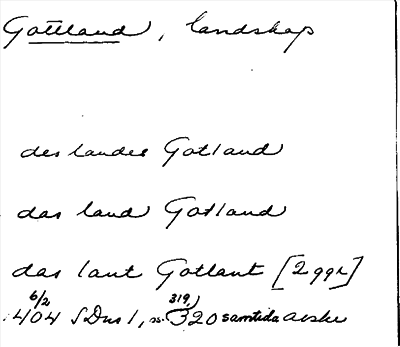 Gottland, landskap
des landes Gotland
das land Gotland
das lant Gotlant [2 ggr]
6/2 1404 SDns 1, s. 319, 320 samtida avskr